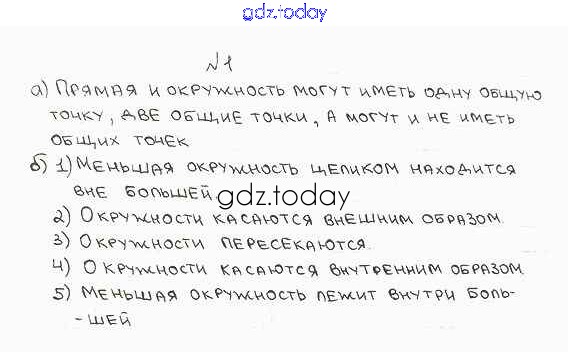 gdz.today
№1
а) Прямая и окружность могут иметь одну общую
точку, две общие точки, а могут и не иметь
общих точек
б) 1) Меньшая окружность целиком находится
вне большей
gdz.today
2) Окружности касаются внешним образом.
3) Окружности пересекаются.
4) Окружности касаются внутренним образом
5) Меньшая окружность лежит внутри боль-
-шей